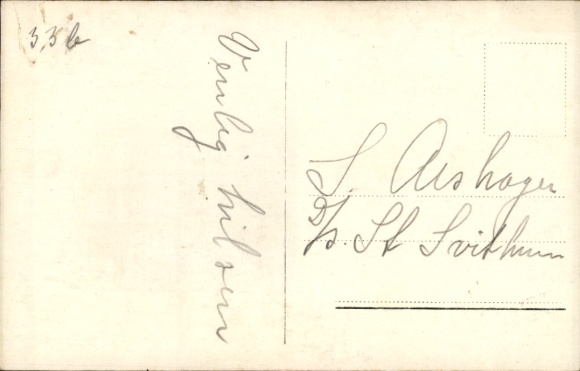 33b
Venlig hilsen
S. Aeshagen
D/s. St Svithun